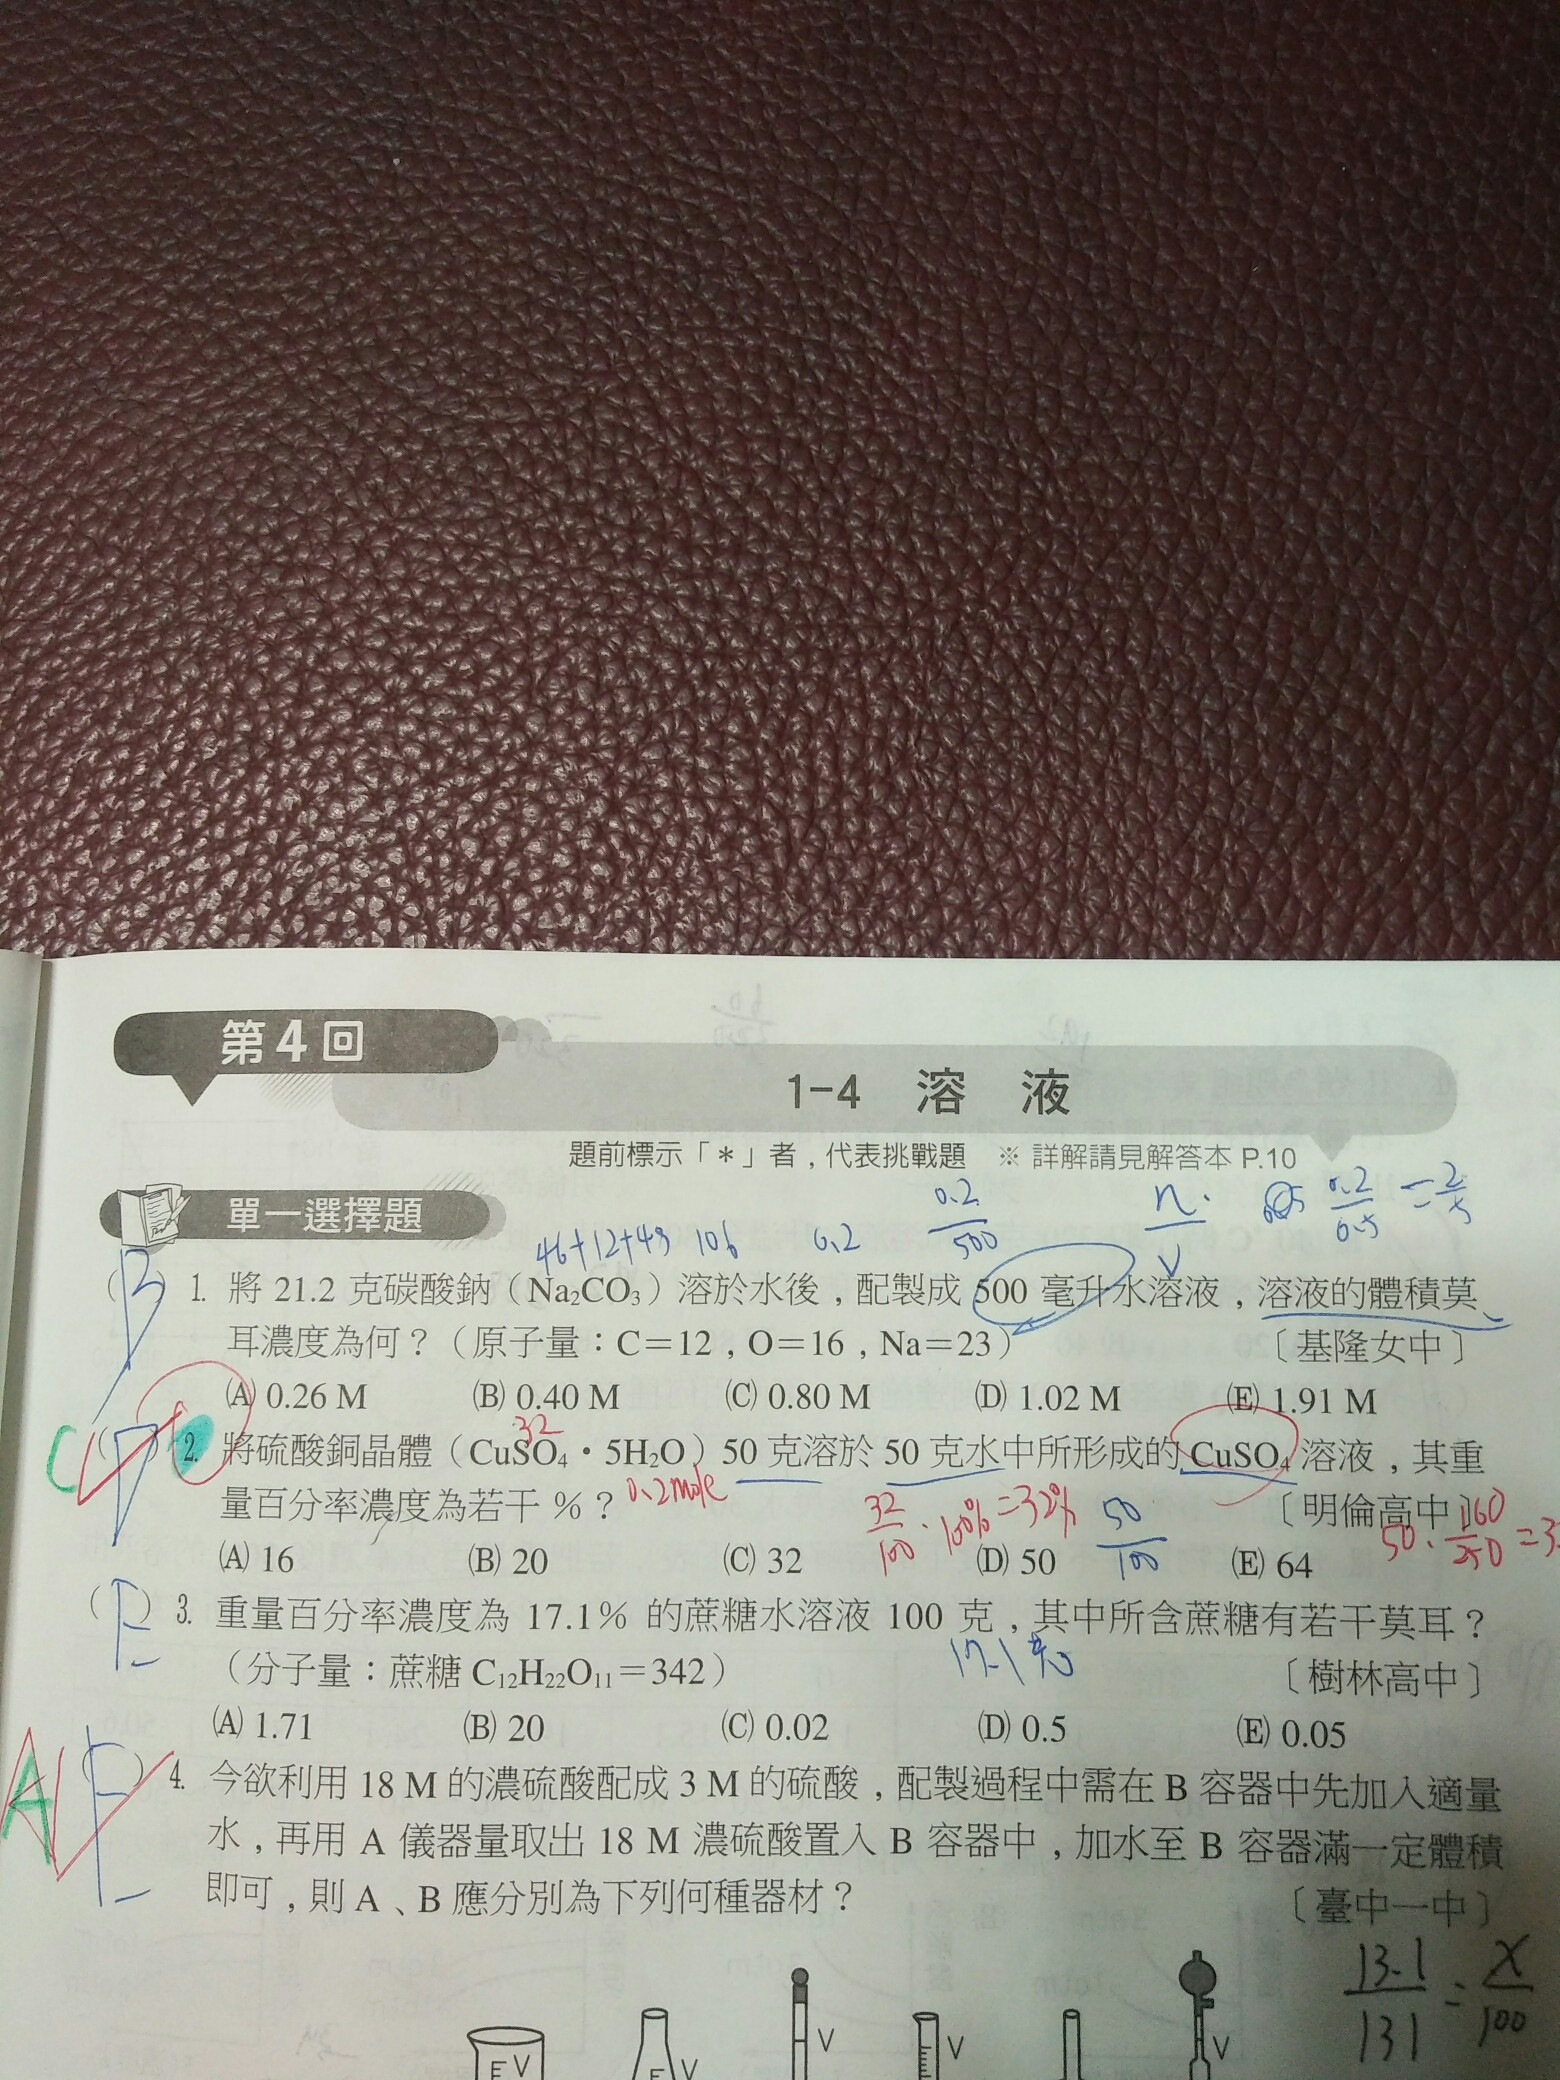 第4回
1-4 溶 液
題前標示「*」者,代表挑戰題 ※ 詳解請見解答本 P.10
單一選擇題
46+12+48 106 0.2 0.2/500 n/V 0.2/0.5 =2/5
(B) 1. 將 21.2 克碳酸鈉(Na₂CO₃)溶於水後,配製成 500 毫升水溶液,溶液的體積莫
耳濃度為何?(原子量:C=12,O=16,Na=23) 〔基隆女中〕
(A) 0.26 M (B) 0.40 M (C) 0.80 M (D) 1.02 M (E) 1.91 M
32
C (D) 2. 將硫酸銅晶體(CuSO₄•5H₂O)50 克溶於 50 克水中所形成的 CuSO₄ 溶液,其重
量百分率濃度為若干 %? 〔明倫高中〕
0.2mole 32/100 · 100% =32% 50/100 50 · 160/250 =3
(A) 16 (B) 20 (C) 32 (D) 50 (E) 64
(E) 3. 重量百分率濃度為 17.1% 的蔗糖水溶液 100 克,其中所含蔗糖有若干莫耳?
17.1克
(分子量:蔗糖 C₁₂H₂₂O₁₁=342) 〔樹林高中〕
(A) 1.71 (B) 20 (C) 0.02 (D) 0.5 (E) 0.05
A (E) 4. 今欲利用 18 M 的濃硫酸配成 3 M 的硫酸,配製過程中需在 B 容器中先加入適量
水,再用 A 儀器量取出 18 M 濃硫酸置入 B 容器中,加水至 B 容器滿一定體積
即可,則 A、B 應分別為下列何種器材? 〔臺中一中〕
13.1/131 = x/100
E V E V V V V